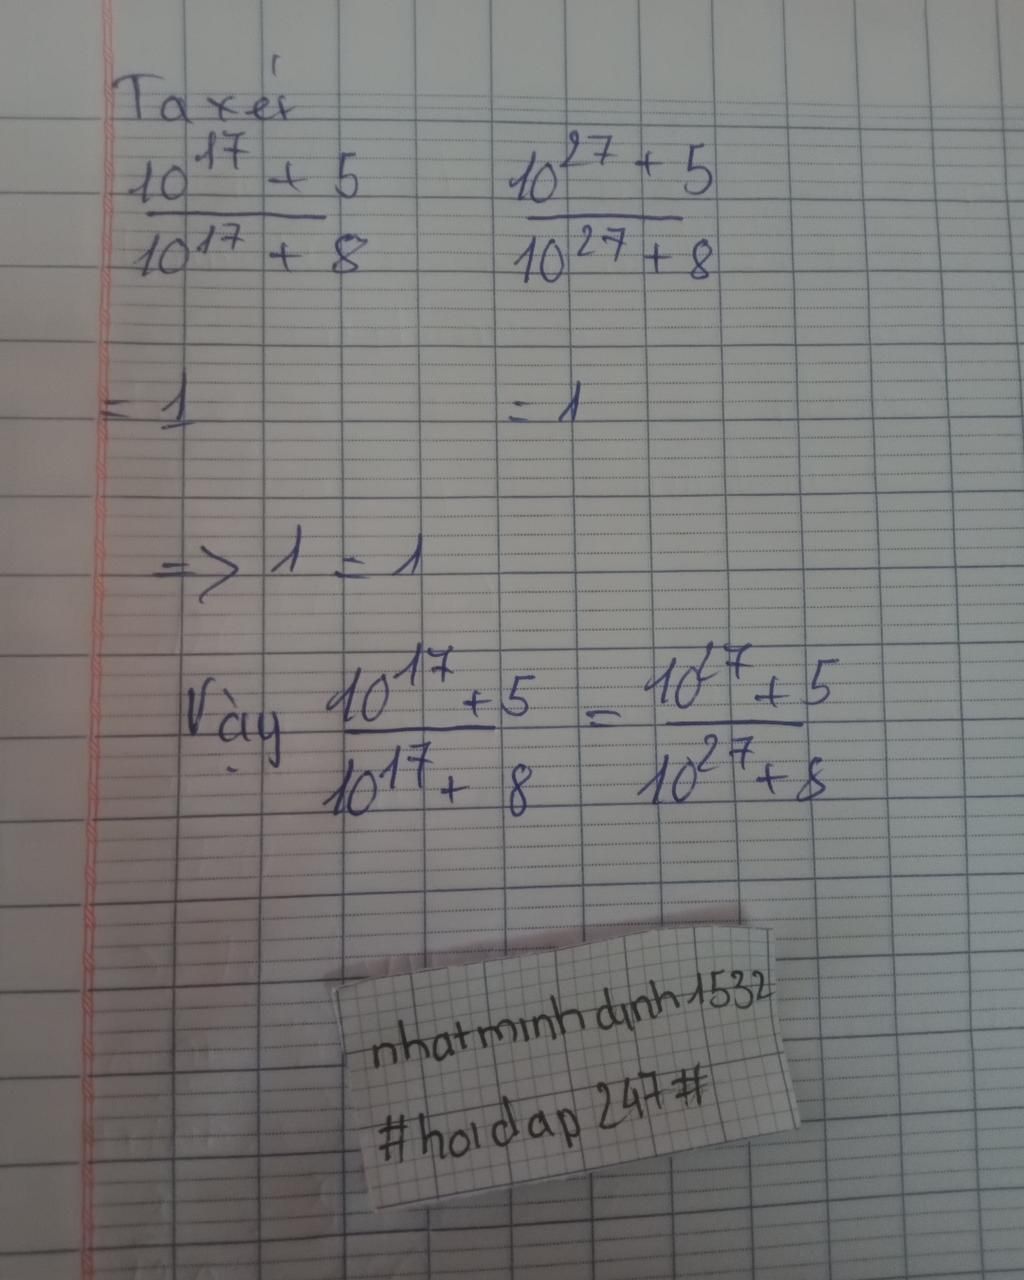 Ta xét
10^17 + 5 / 10^17 + 8    10^27 + 5 / 10^27 + 8
= 1    = 1
=> 1 = 1
Vậy 10^17 + 5 / 10^17 + 8 = 10^27 + 5 / 10^27 + 8
nhatminhdinh1532
#hoidap247#